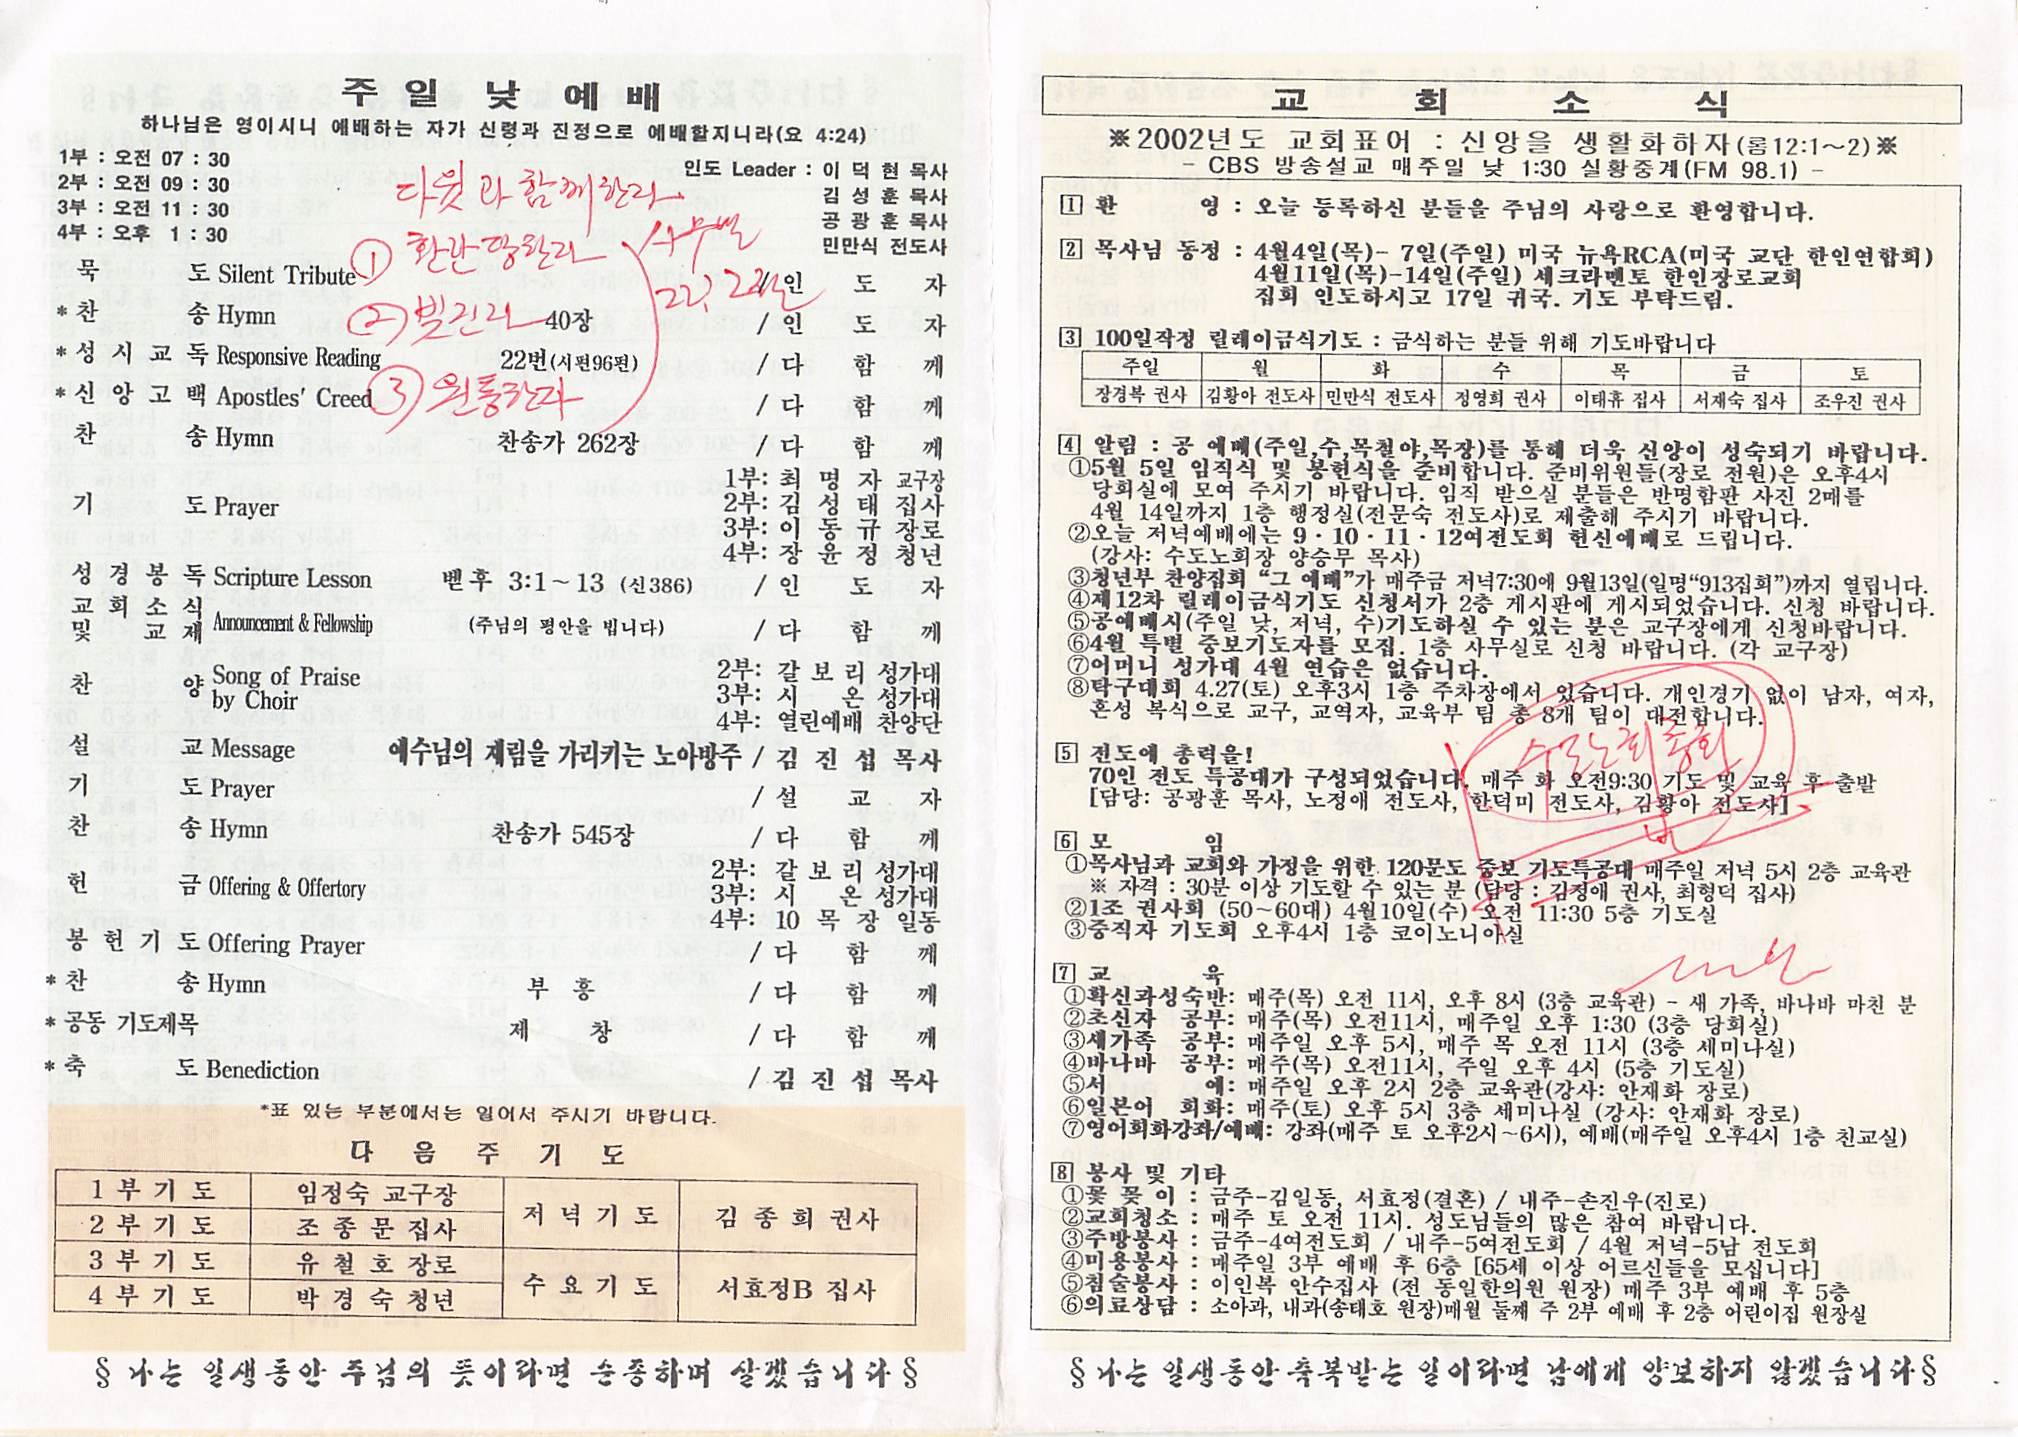 주 일 낮 예 배
하나님은 영이시니 예배하는 자가 신령과 진정으로 예배할지니라(요 4:24)
1부 : 오전 07 : 30
2부 : 오전 09 : 30
3부 : 오전 11 : 30
4부 : 오후 1 : 30
인도 Leader : 이 덕 현 목사
김 성 훈 목사
공 광 훈 목사
민만식 전도사
다윗과 함께한다
① 환난당한다
② 빚진다
③ 원통한다
사무엘
22, 2절
묵 도 Silent Tribute / 인 도 자
* 찬 송 Hymn 40장 / 인 도 자
* 성 시 교 독 Responsive Reading 22번(시편96편) / 다 함 께
* 신 앙 고 백 Apostles' Creed / 다 함 께
찬 송 Hymn 찬송가 262장 / 다 함 께
기 도 Prayer
1부: 최 명 자 교구장
2부: 김 성 태 집사
3부: 이 동 규 장로
4부: 장 윤 정 청년
성 경 봉 독 Scripture Lesson 벧후 3:1~13 (신386) / 인 도 자
교 회 소 식
및 교 제 Announcement & Fellowship (주님의 평안을 빕니다) / 다 함 께
찬 양 Song of Praise
by Choir
2부: 갈 보 리 성가대
3부: 시 온 성가대
4부: 열린예배 찬양단
설 교 Message 예수님의 재림을 가리키는 노아방주 / 김 진 섭 목사
기 도 Prayer / 설 교 자
찬 송 Hymn 찬송가 545장 / 다 함 께
헌 금 Offering & Offertory
2부: 갈 보 리 성가대
3부: 시 온 성가대
4부: 10 목 장 일동
봉 헌 기 도 Offering Prayer / 다 함 께
* 찬 송 Hymn 부 흥 / 다 함 께
* 공동 기도제목 제 창 / 다 함 께
* 축 도 Benediction / 김 진 섭 목사
*표 있는 부분에서는 일어서 주시기 바랍니다.
다 음 주 기 도
1 부 기 도 임정숙 교구장
2 부 기 도 조 종 문 집사
3 부 기 도 유 철 호 장로
4 부 기 도 박 경 숙 청년
저 녁 기 도 김 종 희 권사
수 요 기 도 서효정B 집사
§ 나는 일생동안 주님의 뜻이라면 순종하며 살겠습니다 §
교 회 소 식
※2002년도 교회표어 : 신앙을 생활화하자(롬12:1~2)※
CBS 방송설교 매주일 낮 1:30 실황중계(FM 98.1) -
1 환 영 : 오늘 등록하신 분들을 주님의 사랑으로 환영합니다.
2 목사님 동정 : 4월4일(목)- 7일(주일) 미국 뉴욕RCA(미국 교단 한인연합회)
4월11일(목)-14일(주일) 새크라멘토 한인장로교회
집회 인도하시고 17일 귀국. 기도 부탁드림.
3 100일작정 릴레이금식기도 : 금식하는 분들 위해 기도바랍니다
주일 월 화 수 목 금 토
장경복 권사 김황아 전도사 민만식 전도사 정영희 권사 이태휴 집사 서재숙 집사 조우진 권사
4 알림 : 공 예배(주일,수,목철야,목장)를 통해 더욱 신앙이 성숙되기 바랍니다.
①5월 5일 임직식 및 봉헌식을 준비합니다. 준비위원들(장로 전원)은 오후4시
당회실에 모여 주시기 바랍니다. 임직 받으실 분들은 반명함판 사진 2매를
4월 14일까지 1층 행정실(전문숙 전도사)로 제출해 주시기 바랍니다.
②오늘 저녁예배에는 9·10·11·12여전도회 헌신예배로 드립니다.
(강사: 수도노회장 양승무 목사)
③청년부 찬양집회 “그 예배”가 매주금 저녁7:30에 9월13일(일명“913집회”)까지 열립니다.
④제12차 릴레이금식기도 신청서가 2층 게시판에 게시되었습니다. 신청 바랍니다.
⑤공예배시(주일 낮, 저녁, 수)기도하실 수 있는 분은 교구장에게 신청바랍니다.
⑥4월 특별 중보기도자를 모집. 1층 사무실로 신청 바랍니다. (각 교구장)
⑦어머니 성가대 4월 연습은 없습니다.
⑧탁구대회 4.27(토) 오후3시 1층 주차장에서 있습니다. 개인경기 없이 남자, 여자,
혼성 복식으로 교구, 교역자, 교육부 팀 총 8개 팀이 대전합니다.
5 전도에 총력을!
70인 전도 특공대가 구성되었습니다. 매주 화 오전9:30 기도 및 교육 후 출발
[담당: 공광훈 목사, 노정애 전도사, 한덕미 전도사, 김황아 전도사]
6 모 임
①목사님과 교회와 가정을 위한 120문도 중보 기도특공대 매주일 저녁 5시 2층 교육관
※ 자격 : 30분 이상 기도할 수 있는 분 (담당 : 김정애 권사, 최형덕 집사)
②1조 권사회 (50~60대) 4월10일(수) 오전 11:30 5층 기도실
③중직자 기도회 오후4시 1층 코이노니아실
7 교 육
①확신과성숙반: 매주(목) 오전 11시, 오후 8시 (3층 교육관) - 새 가족, 바나바 마친 분
②초신자 공부: 매주(목) 오전11시, 매주일 오후 1:30 (3층 당회실)
③새가족 공부: 매주일 오후 5시, 매주 목 오전 11시 (3층 세미나실)
④바나바 공부: 매주(목) 오전11시, 주일 오후 4시 (5층 기도실)
⑤서 예: 매주일 오후 2시 2층 교육관(강사: 안재화 장로)
⑥일본어 회화: 매주(토) 오후 5시 3층 세미나실 (강사: 안재화 장로)
⑦영어회화강좌/예배: 강좌(매주 토 오후2시~6시), 예배(매주일 오후4시 1층 친교실)
8 봉사 및 기타
①꽃 꽂 이 : 금주-김일동, 서효정(결혼) / 내주-손진우(진로)
②교회청소 : 매주 토 오전 11시. 성도님들의 많은 참여 바랍니다.
③주방봉사 : 금주-4여전도회 / 내주-5여전도회 / 4월 저녁-5남 전도회
④미용봉사 : 매주일 3부 예배 후 6층 [65세 이상 어르신들을 모십니다]
⑤침술봉사 : 이인복 안수집사 (전 동일한의원 원장) 매주 3부 예배 후 5층
⑥의료상담 : 소아과, 내과(송태호 원장)매월 둘째 주 2부 예배 후 2층 어린이집 원장실
§ 나는 일생동안 축복받는 일이라면 남에게 양보하지 않겠습니다 §